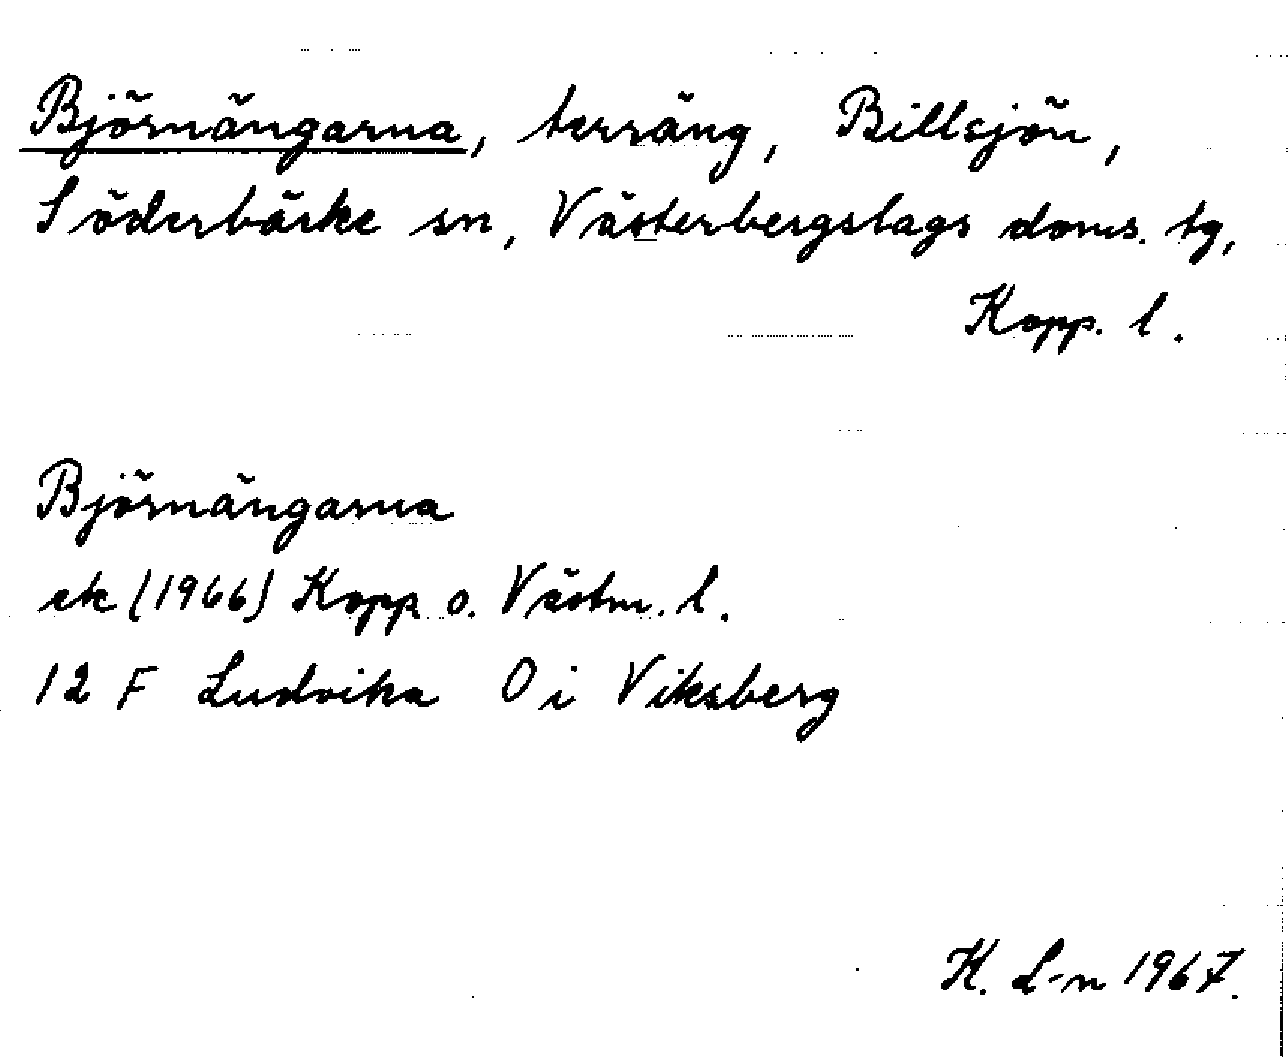 Björnängarna, terräng, Billsjön,
Söderbärke sn, Västerbergslags doms. tg,
Kopp. l.
Björnängarna
ek (1966) Kopp. o. Västm. l.
12 F Ludvika O i Viksberg
K. L-n 1967.